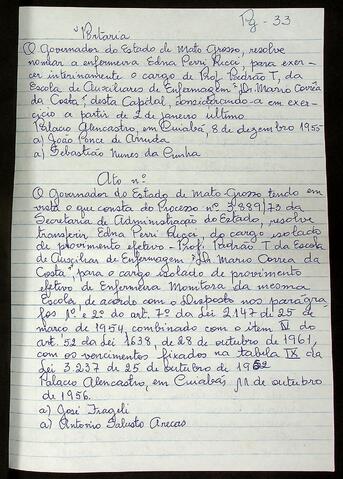 Pg - 33
"Portaria
O Governador do Estado de Mato Grosso, resolve
nomear a enfermeira Edna Perri Ricci, para exer-
cer interinamente o cargo de Prof. Padrão T, da
Escola de Auxiliares de Enfermagem "Dr. Mario Corrêa
da Costa", desta Capital, considerando-a em exer-
cício a partir de 2 de janeiro último
Palacio Alencastro, em Cuiabá, 8 de dezembro 1955
a) João Ponce de Arruda
a) Sebastião Nunes da Cunha
Ato nº
O Governador do Estado de Mato Grosso tendo em
vista o que consta do Processo nº 3.889/73 da
Secretaria de Administração do Estado, resolve
transferir Edna Perri Ricci, do cargo isolado
de provimento efetivo - Prof. Padrão T da Escola
de Auxiliar de Enfermagem "Dr. Mario Correa da
Costa", para o cargo isolado de provimento
efetivo de Enfermeira Monitora da mesma
Escola, de acordo com o Disposto nos paragra-
fos 1º e 2º do art. 7º da Lei 2.147 de 25 de
março de 1954, combinado com o item IV do
art. 52 da Lei 1638, de 28 de outubro de 1961,
com os vencimentos fixados na tabela IX da
Lei 3.237 de 25 de outubro de 1952
Palacio Alencastro, em Cuiabá, 11 de outubro
de 1956.
a) José Frageli
a) Antonio Salusto Arecas